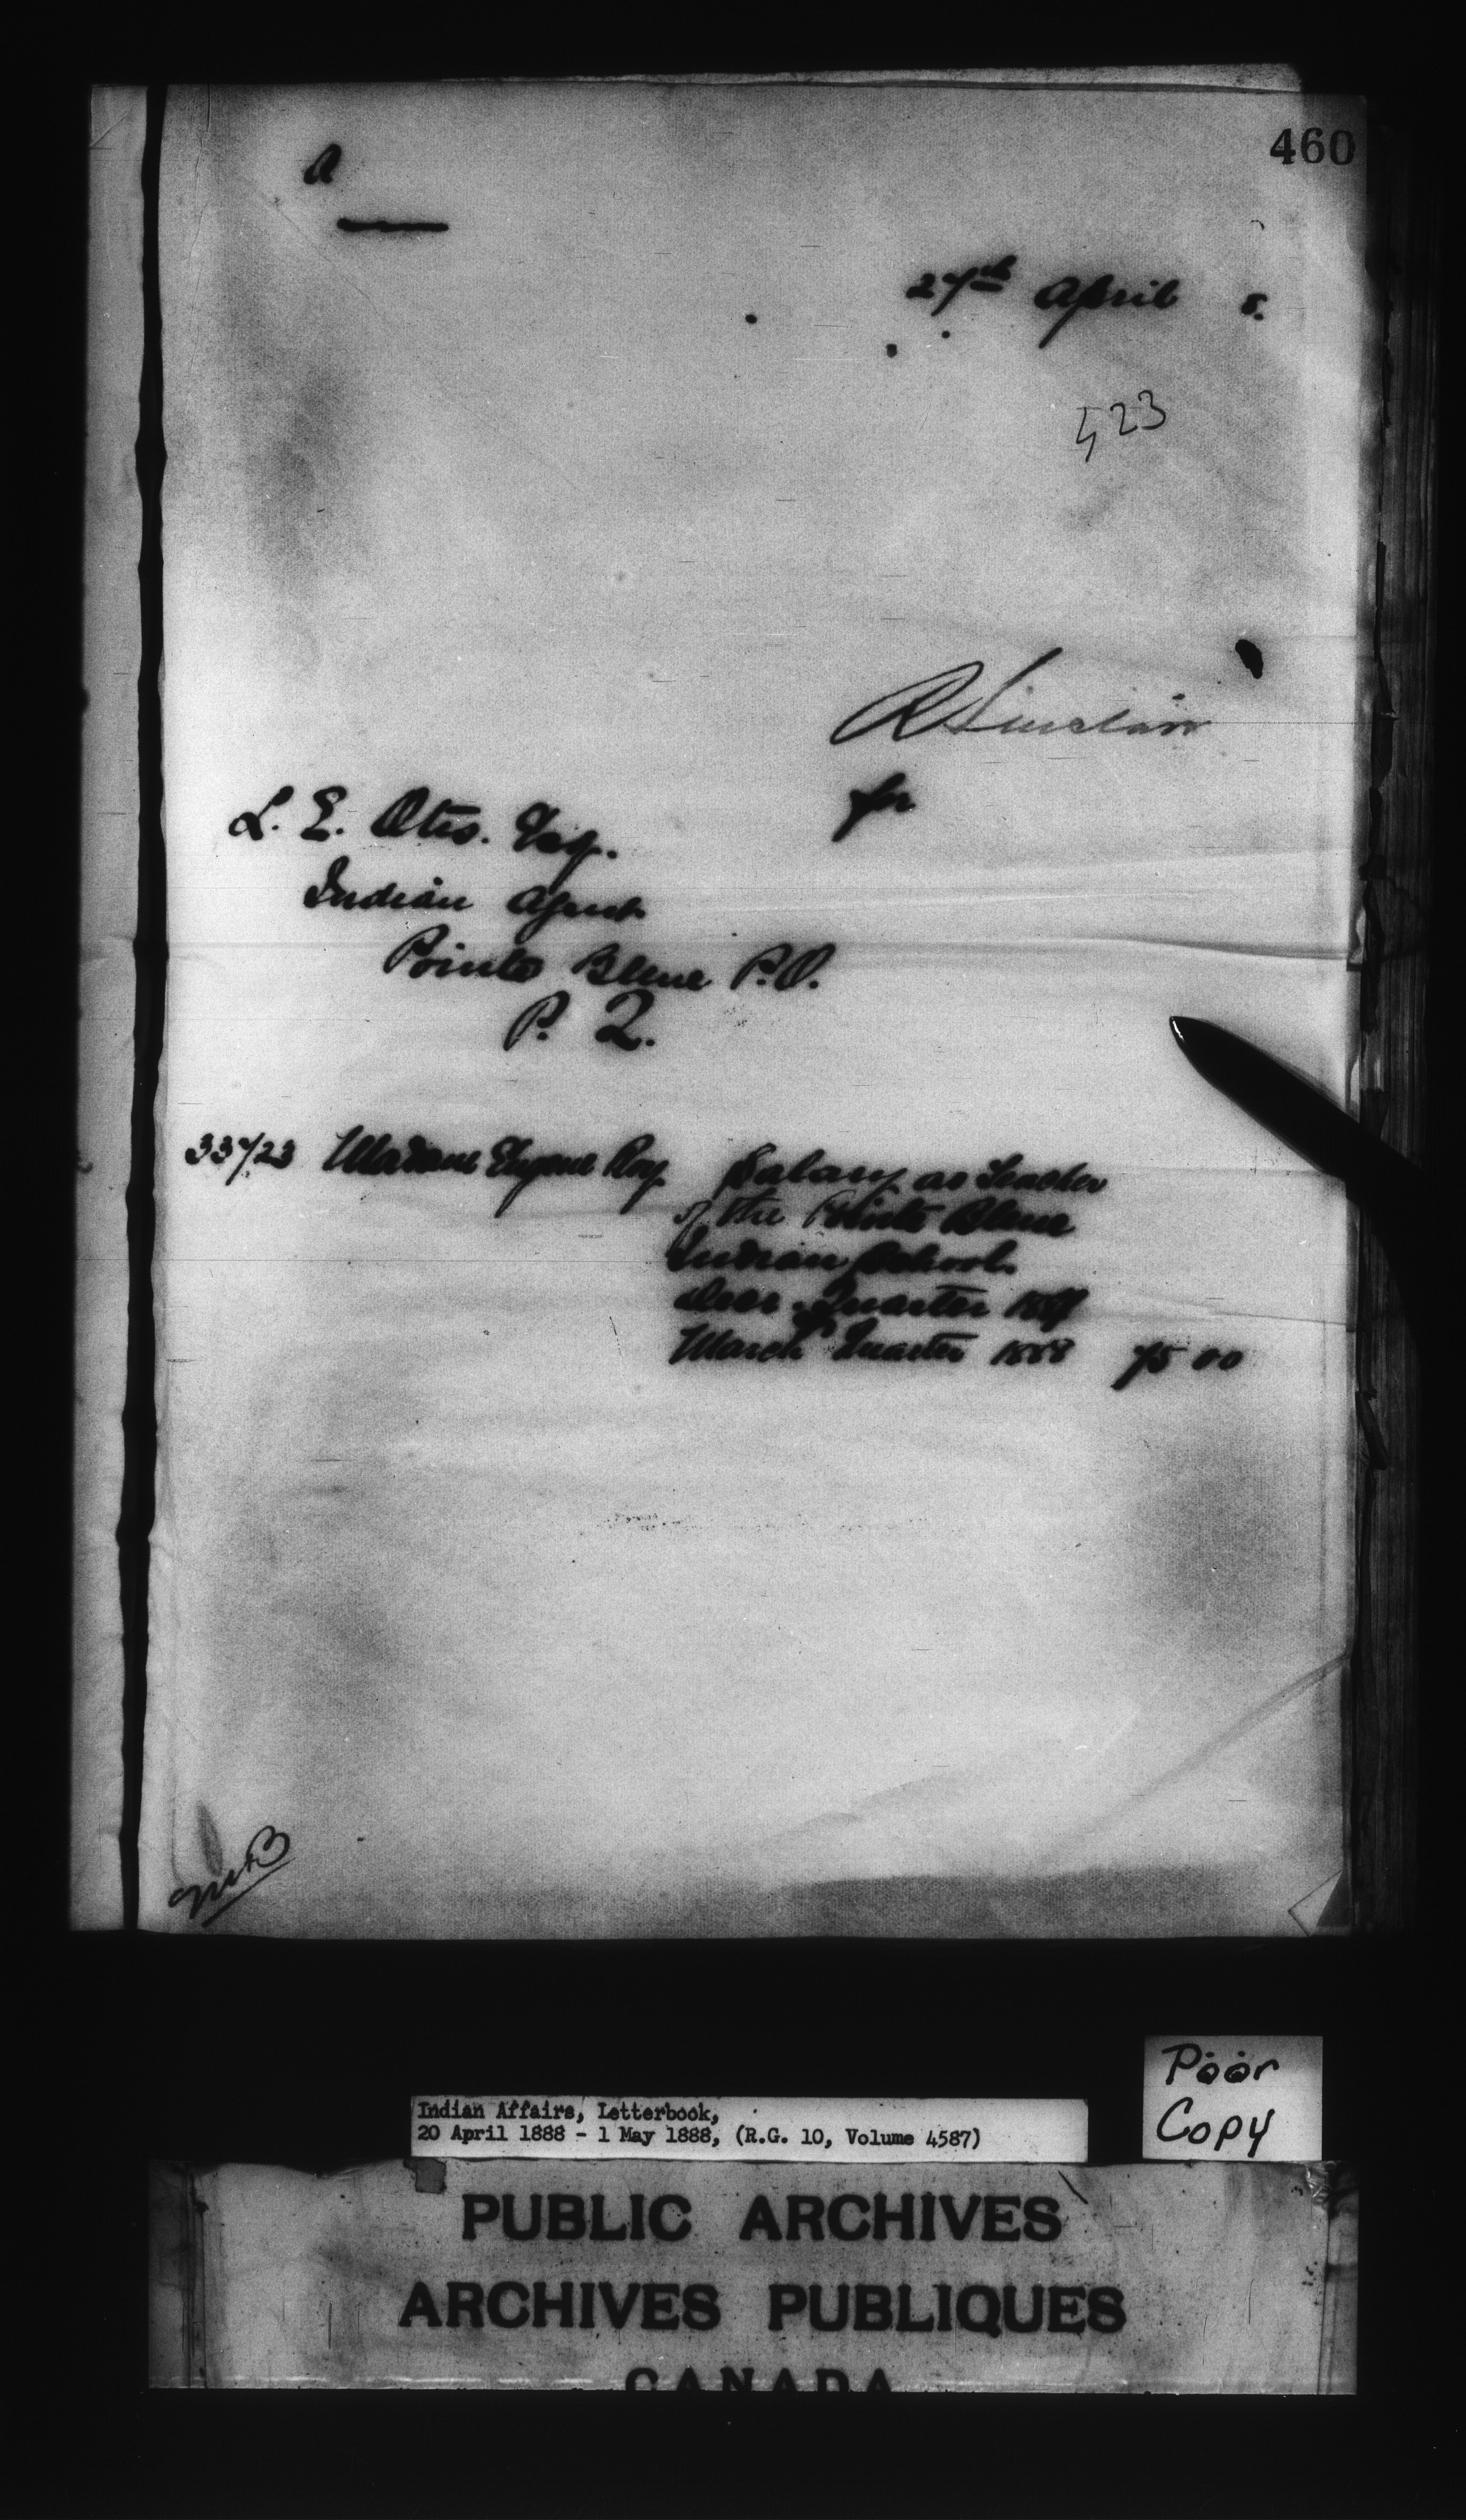 460
a
27th April 8.
523
R Sinclair
for
L. E. Otis. Esq.
Indian Agent
Pointe Bleue P.O.
P. Q.
Madame Eugene Roy Salary as Teacher
of the Pointe Bleue
Indian School
Decr. Quarter 1887
March Quarter 1888 75 00
Poor
Copy
Indian Affairs, Letterbook,
20 April 1888 - 1 May 1888, (R.G. 10, Volume 4587)
PUBLIC ARCHIVES
ARCHIVES PUBLIQUES
CANADA